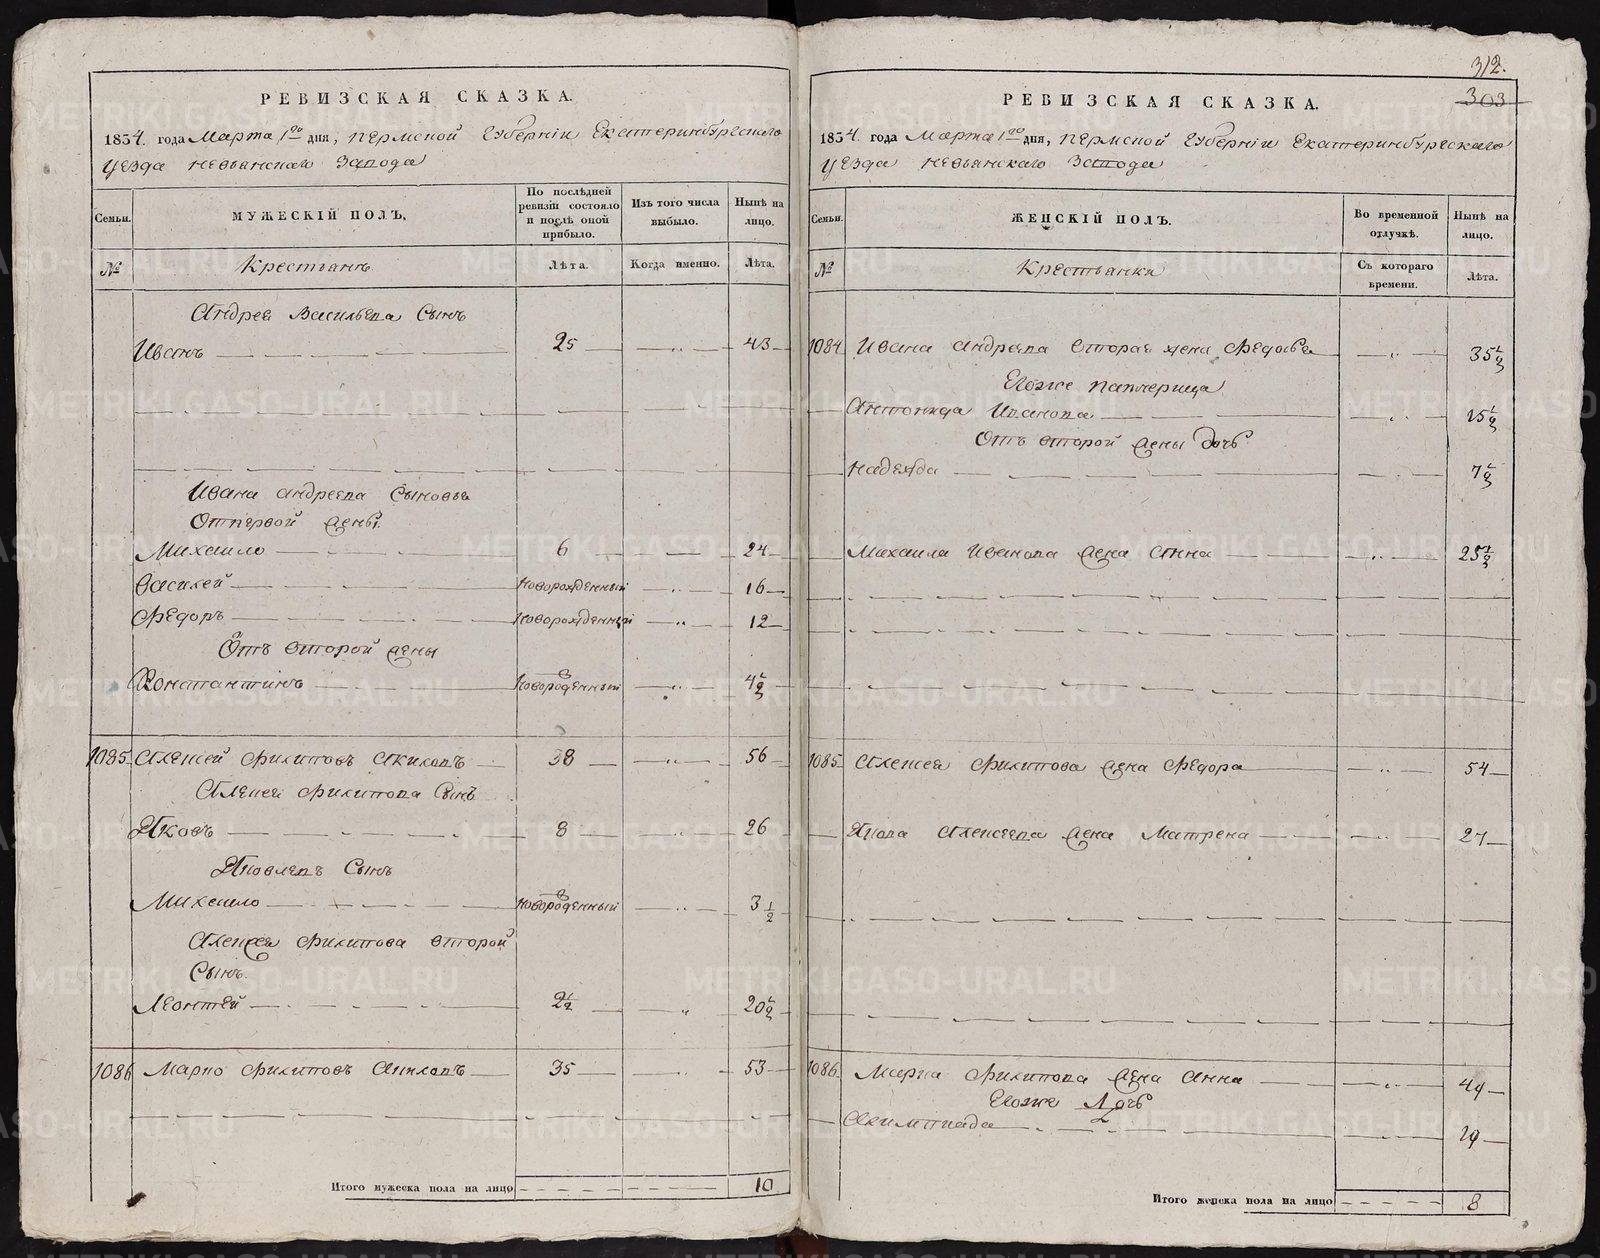 РЕВИЗСКАЯ СКАЗКА.
1834. года Марта 1го дня, Пермской Губернии Екатеринбургскаго
уезда Невьянскаго Завода
Семьи. МУЖЕСКІЙ ПОЛЪ. По послѣдней ревизіи состояло и послѣ оной прибыло. Изъ того числа выбыло. Нынѣ на лицо.
№ Крестьянъ Лѣта. Когда именно. Лѣта.
Андрея Васильева Сынъ
Иванъ 25 43
Ивана Андреева Сыновья
Отпервой жены.
Михаило 6 24
Василей Новорожденный 16
Федоръ Новорожденный 12
Отъ второй жены
Константинъ Новорожденный 4½
1085 Алексей Филиповъ Акиловъ 38 56
Алексея Филипова Сынъ
Яковъ 8 26
Яковлевъ Сынъ
Михаило Новорожденный 3½
Алексея Филипова второй
Сынъ.
Леонтей 2½ 20½
1086 Марко Филиповъ Акиловъ 35 53
Итого мужеска пола на лицо 10
312.
303
РЕВИЗСКАЯ СКАЗКА.
1834. года Марта 1го дня, Пермской Губернии Екатеринбургскаго
уезда Невьянскаго Завода
Семьи. ЖЕНСКІЙ ПОЛЪ. Во временной отлучкѣ. Нынѣ на лицо.
№ Крестьянки Съ котораго времени. Лѣта.
1084 Ивана Андреева вторая жена Федосья 35½
Егоже патчерица
Антонида Иванова 15½
Отъ второй жены дочь
Надежда 7½
Михаила Иванова жена Анна 25½
1085 Алексея Филипова жена Федора 54
Якова Алексеева жена Матрена 27
1086 Марка Филипова жена Анна 49
Егоже Дочь
Акимпиада 19
Итого женска пола на лицо 8
METRIKI.GASO-URAL.RU